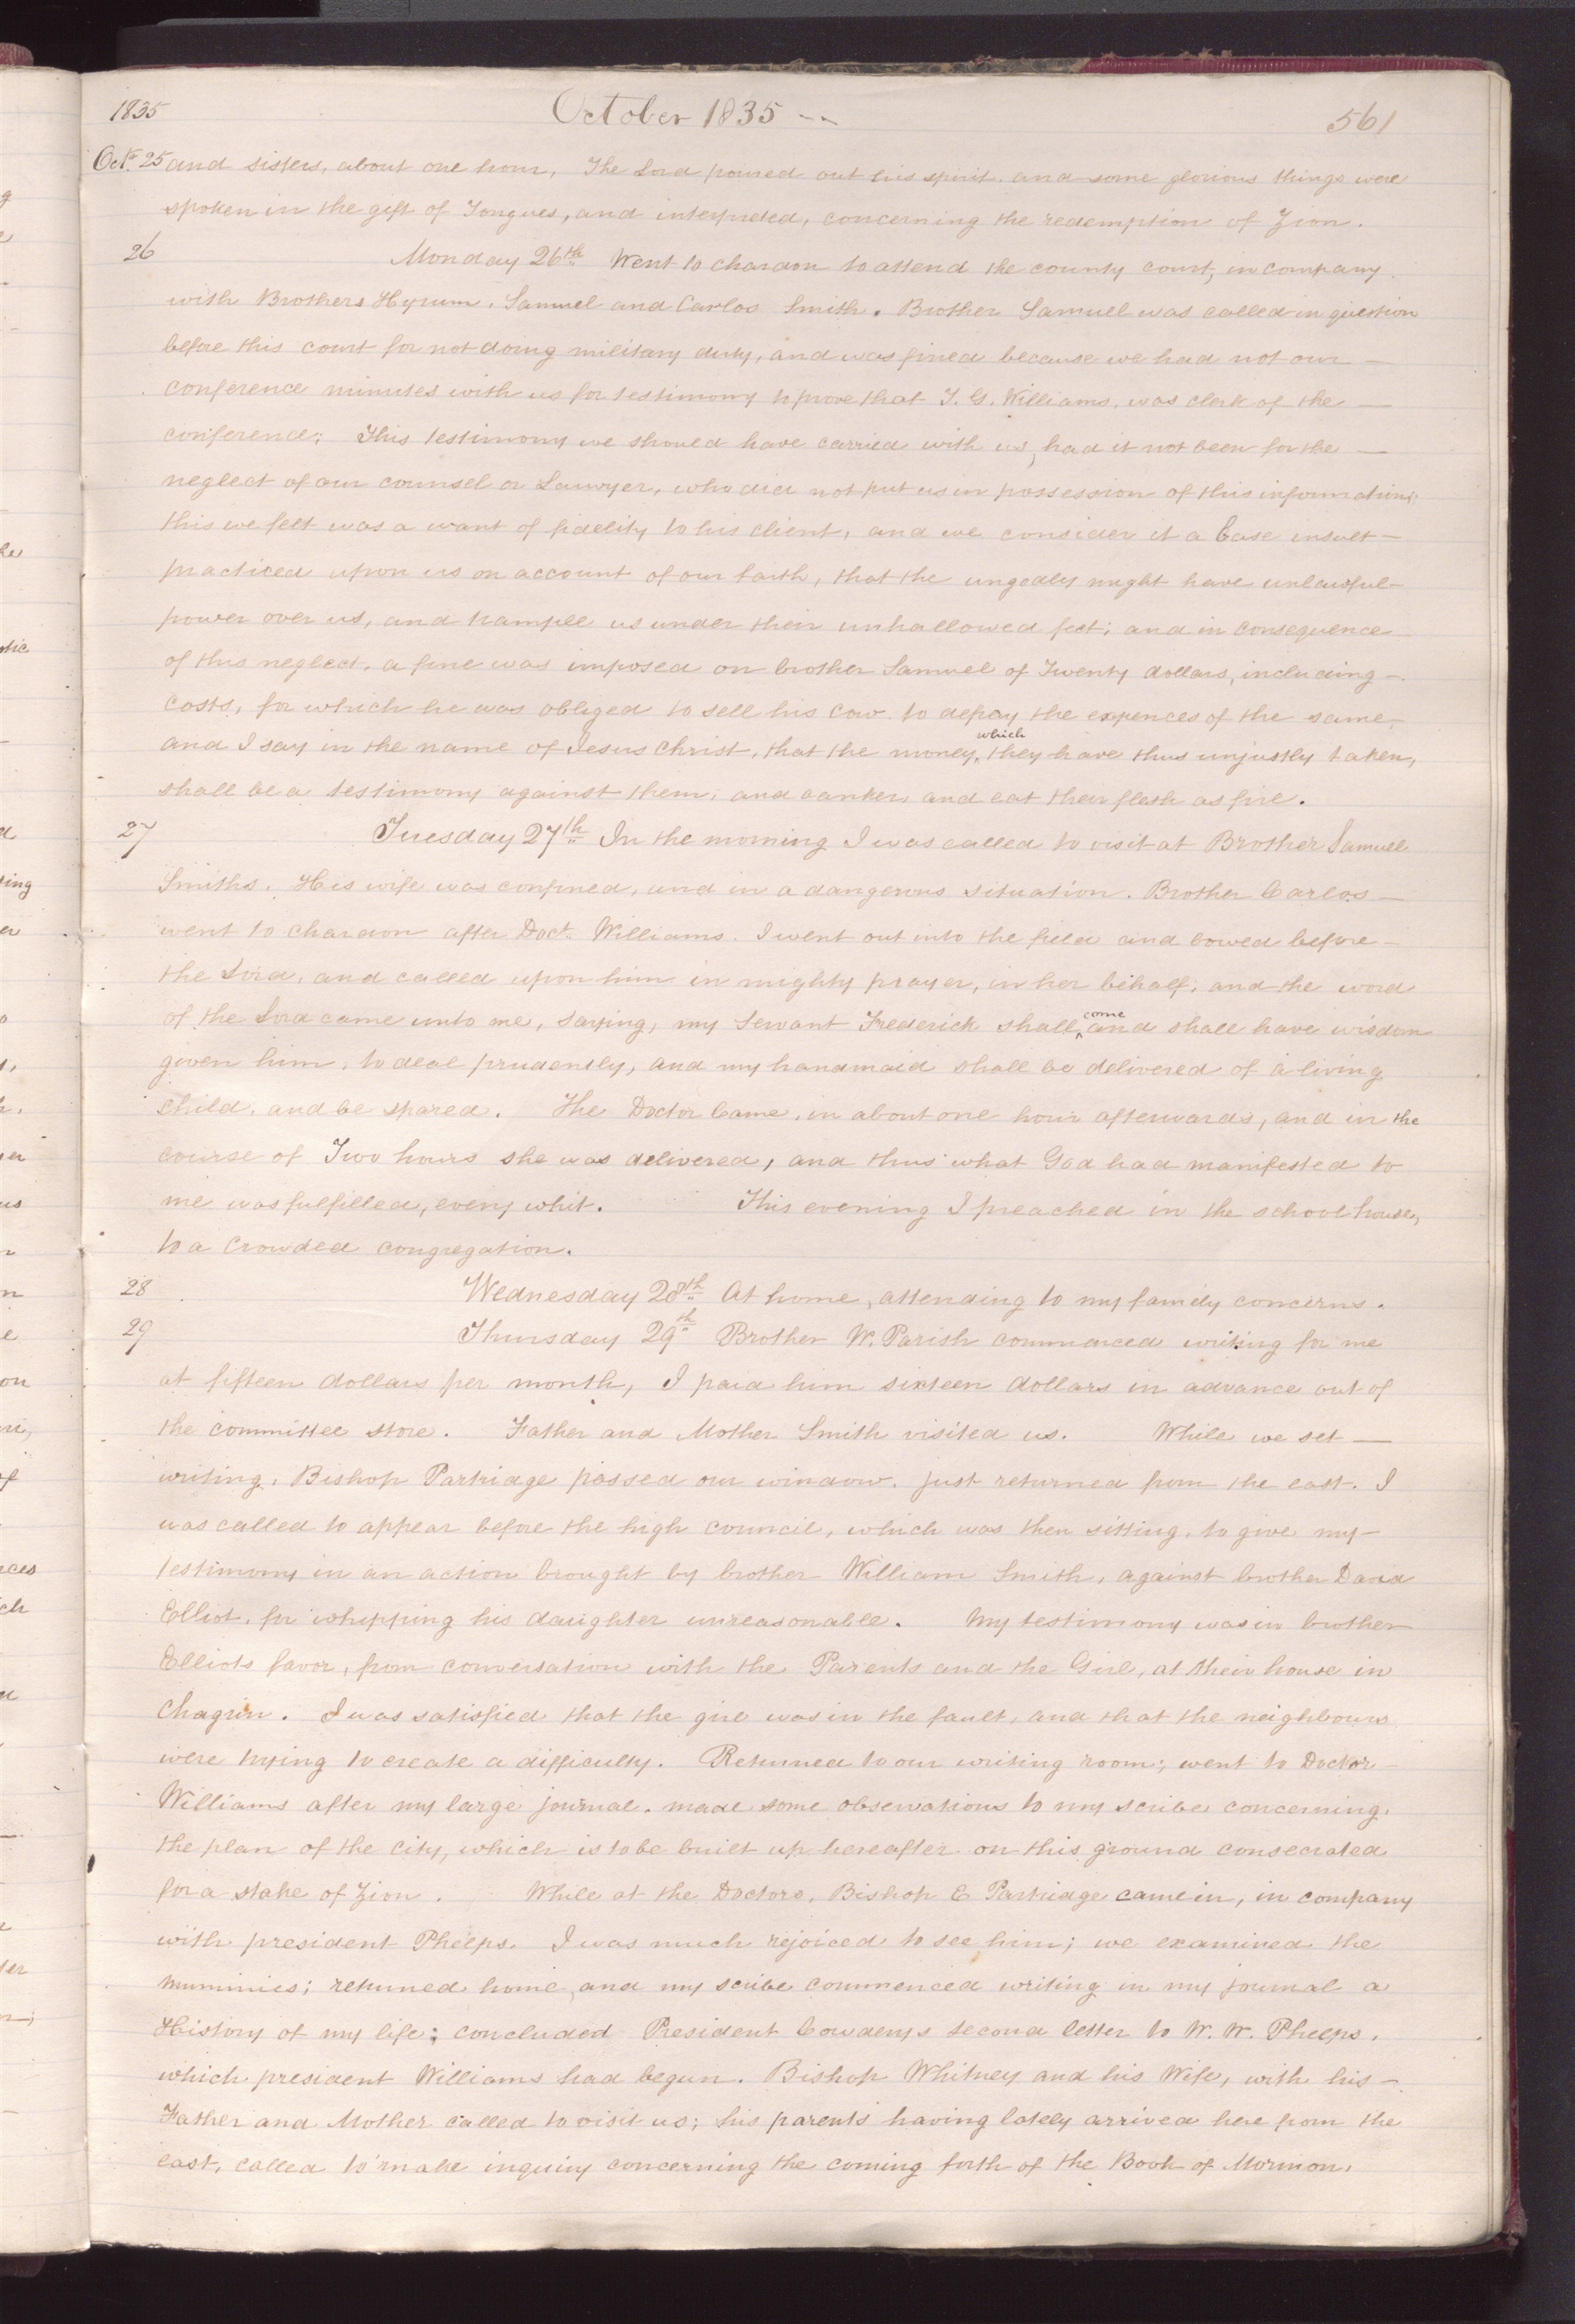 1835 October 1835 -- 561
Oct. 25 and sisters, about one hour, The Lord poured out his spirit. and some glorious things were
spoken in the gift of Tongues, and interpreted, concerning the redemption of Zion.
26 Monday 26th Went to chardon to attend the county court, in company
with Brothers Hyrum, Samuel and Carlos Smith. Brother Samuel was called in question
before this court for not doing military duty, and was fined because we had not our —
conference minutes with us for testimony to prove that F. G. Williams, was clerk of the —
conference; This testimony we should have carried with us, had it not been for the —
neglect of our counsel or Lawyer, who did not put us in possession of this information;
this we felt was a want of fidelity to his client, and we consider it a base insult —
practiced upon us on account of our faith, that the ungodly might have unlawful —
power over us, and trample us under their unhallowed feet; and in consequence
of this neglect, a fine was imposed on brother Samuel of Twenty dollars, including —
costs, for which he was obliged to sell his cow. to defray the expences of the same,
and I say in the name of Jesus Christ, that the money, which they have thus unjustly taken,
shall be a testimony against them; and canker, and eat their flesh as fire.
27 Tuesday 27th In the morning I was called to visit at Brother Samuel
Smiths. His wife was confined, and in a dangerous situation. Brother Carlos —
went to chardon after Doct. Williams. I went out into the field and bowed before —
the Lord, and called upon him in mighty prayer, in her behalf; and the word
of the Lord came unto me, saying, my Servant Frederick shall come and shall have wisdom
given him, to deal prudently, and my handmaid shall be delivered of a living
child, and be spared. The Doctor Came, in about one hour afterwards, and in the
course of Two hours she was delivered, and thus what God had manifested to
me was fulfilled, every whit. This evening I preached in the school house,
to a crowded congregation.
28 Wednesday 28th At home, attending to my family concerns.
29 Thursday 29th Brother W. Parish commenced writing for me
at fifteen dollars per month, I paid him sixteen dollars in advance out of
the committee store. Father and Mother Smith visited us. While we set —
writing, Bishop Partridge passed our window. just returned from the east. I
was called to appear before the high council, which was then sitting, to give my —
testimony in an action brought by brother William Smith, against brother David
Elliot, for whipping his daughter unreasonable. My testimony was in brother
Elliots favor, from conversation with the Parents and the Girl, at their house in
Chagrin. I was satisfied that the girl was in the fault, and that the neighbours
were trying to create a difficulty. Returned to our writing room; went to Doctor
Williams after my large journal. made some observations to my scribe concerning,
the plan of the city, which is to be built up hereafter on this ground consecrated
for a stake of Zion. While at the Doctors, Bishop E Partridge came in, in company
with president Phelps. I was much rejoiced to see him; we examined the
mummies; returned home, and my scribe commenced writing in my journal a
History of my life; concluded President Cowderys second letter to W. W. Phelps,
which president Williams had begun. Bishop Whitney and his Wife, with his —
Father and Mother called to visit us; his parents having lately arrived here from the
east, called to make inquiry concerning the coming forth of the Book of Mormon,